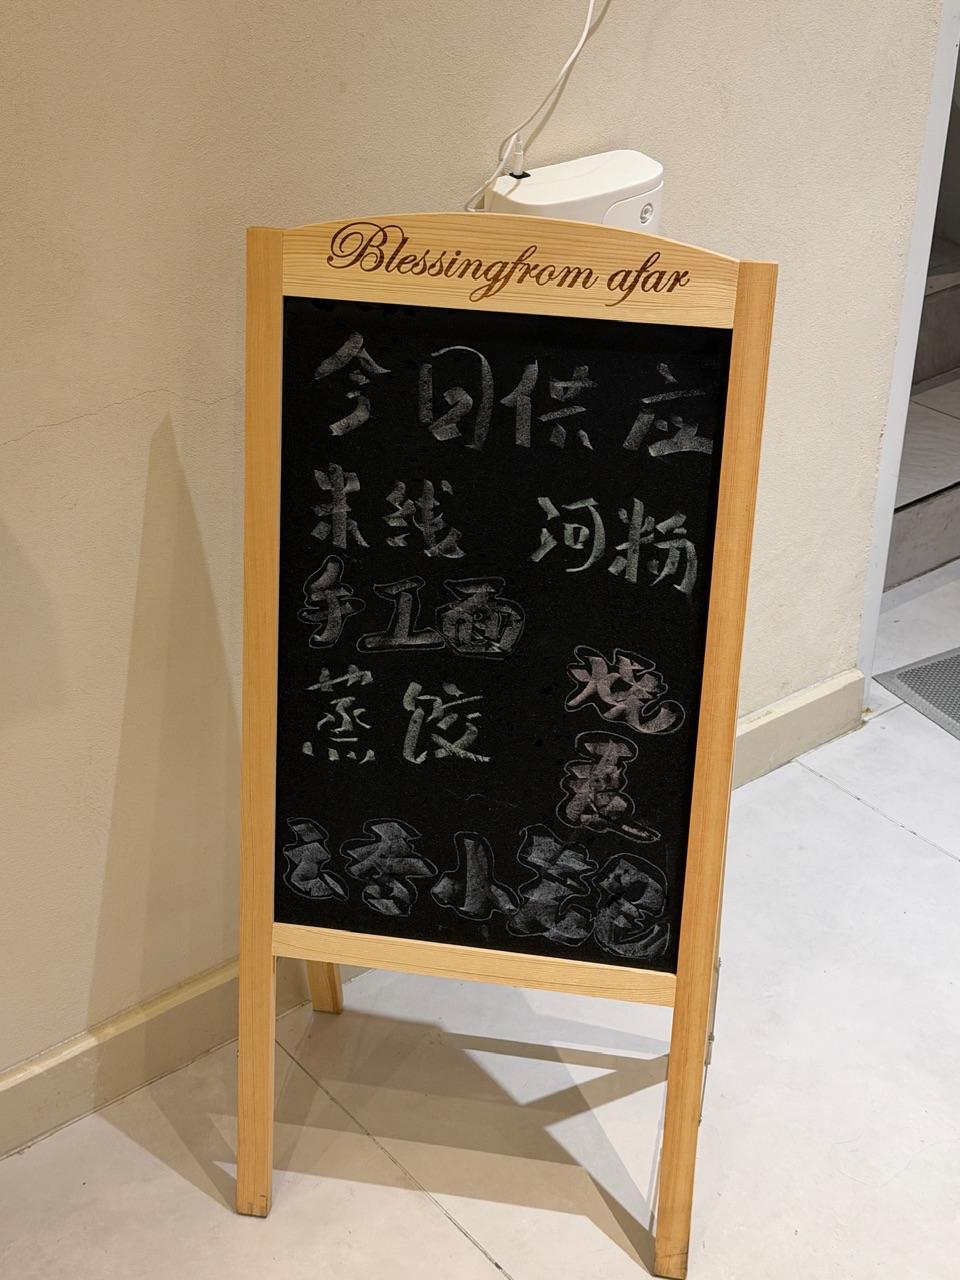 Blessingfrom afar
今日供应
米线 河粉
手工面
蒸饺
烧麦
香小笼包